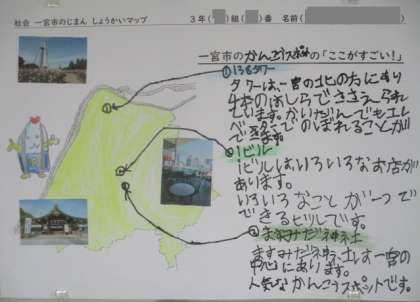 社会 一宮市のじまん しょうかいマップ
3年 組 番 名前
一宮市のかんこうスポットの「ここがすごい!」
138タワー
タワーは、一宮の北の方にあり
4本のはしらでささえられ
ています。かいだんでもエレ
ベーターでのぼれることが
できます。
iビル
iビルは、いろいろなお店が
あります。
いろいろなことが一つで
できるビルです。
ますみだ神社
ますみだ神社は一宮の
中心にあります。
人気なかんこうスポットです。